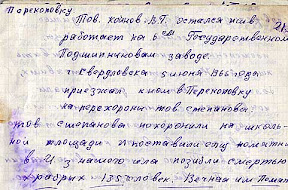 Перекоповку
Тов. Копцов В.Т. остался жив
работает на 6 ом Государственном
Подшипниковом заводе.
г. Свердловска 5 июня 1966 года
приезжал к нам в Перекоповку
на перехорона тов степанова
тов степанова похоронили на школь-
ной площади и поставили ему памятник
в 21 из нашого села погибли смертью
храбрих 135 человек. Вечная им Память